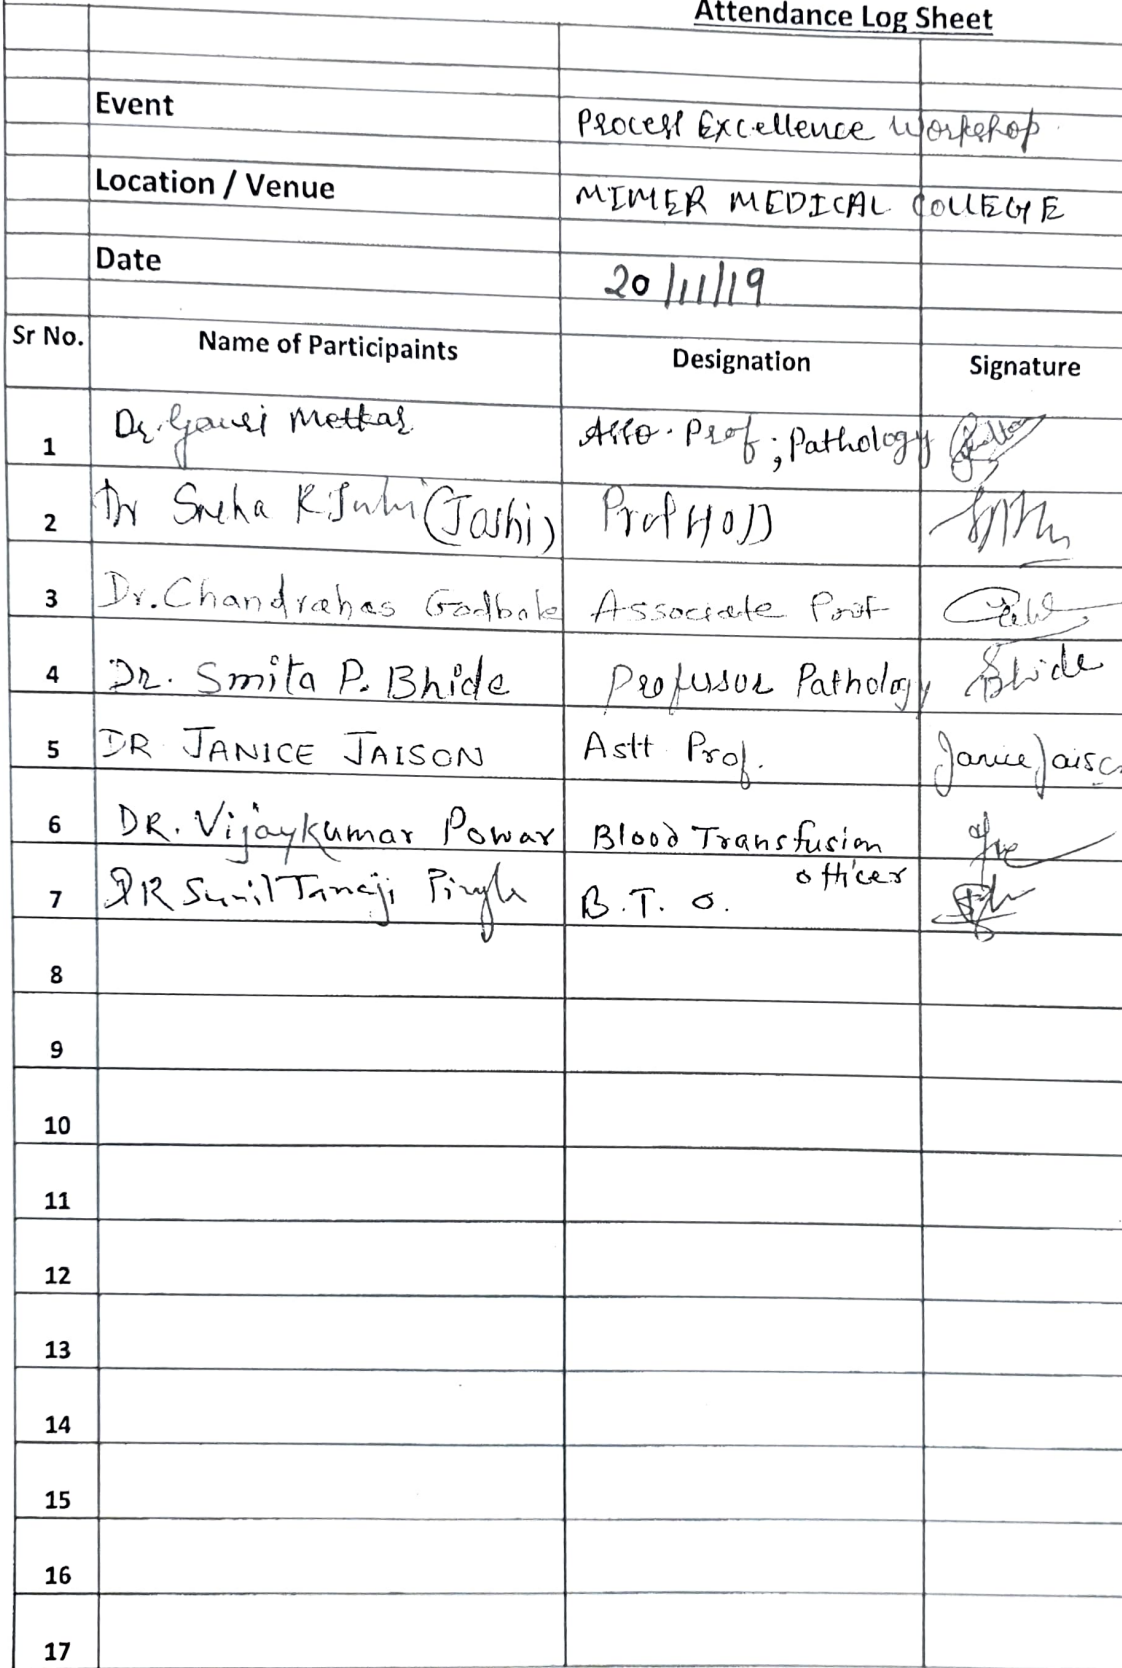 Attendance Log Sheet
Event Process Excellence Workshop
Location / Venue MIMER MEDICAL COLLEGE
Date 20/11/19
Sr No. Name of Participaints Designation Signature
1 Dr. Gauri Metkar Asso. Prof; Pathology
2 Dr Sneha R Juhi (Joshi) Prof HOD
3 Dr. Chandrahas Godbole Associate Prof
4 Dr. Smita P. Bhide Professor Pathology Bhide
5 DR JANICE JAISON Astt Prof. Janice Jaiso
6 DR. Vijaykumar Powar Blood Transfusion
officer
7 DR Sunil Tanaji Pingle B.T.O.
8
9
10
11
12
13
14
15
16
17